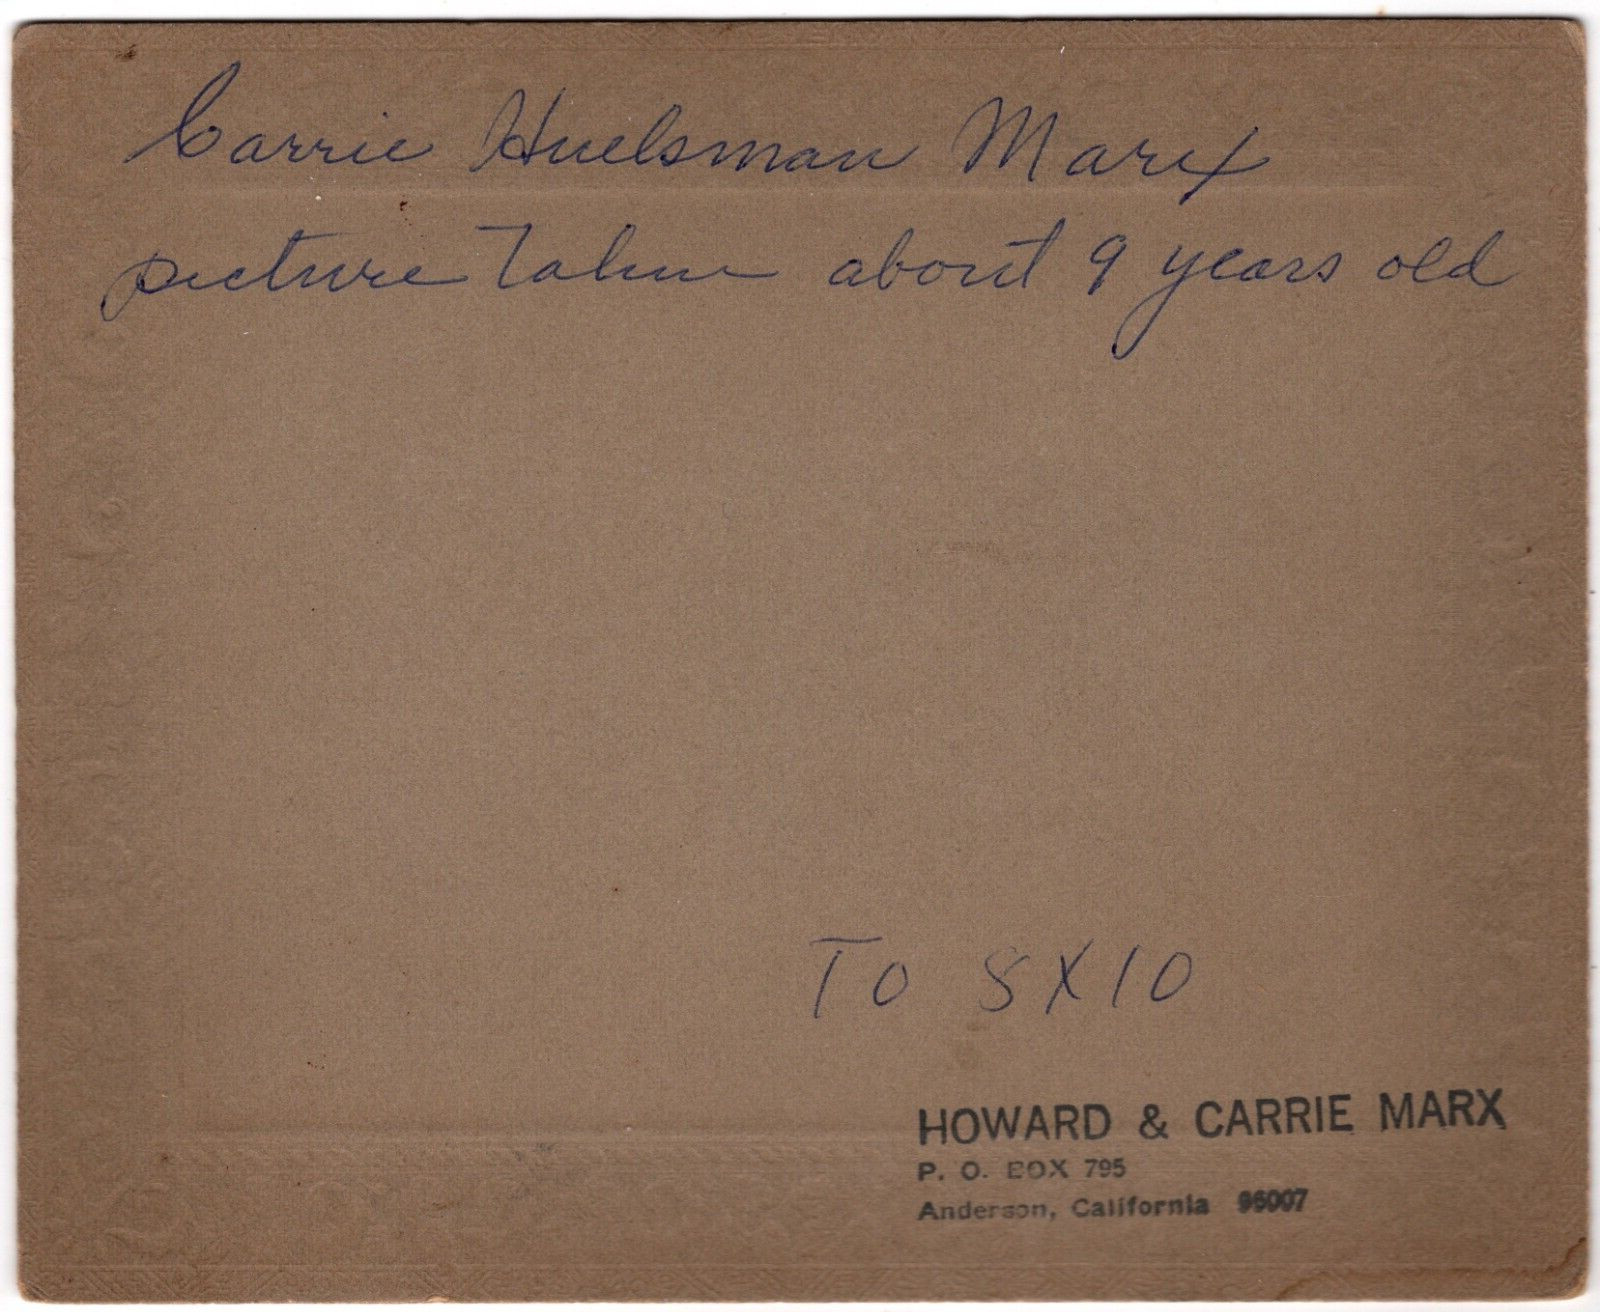 Carrie Huelsman Marx
picture taken about 9 years old
To 8X10
HOWARD & CARRIE MARX
P. O. BOX 795
Anderson, California 96007